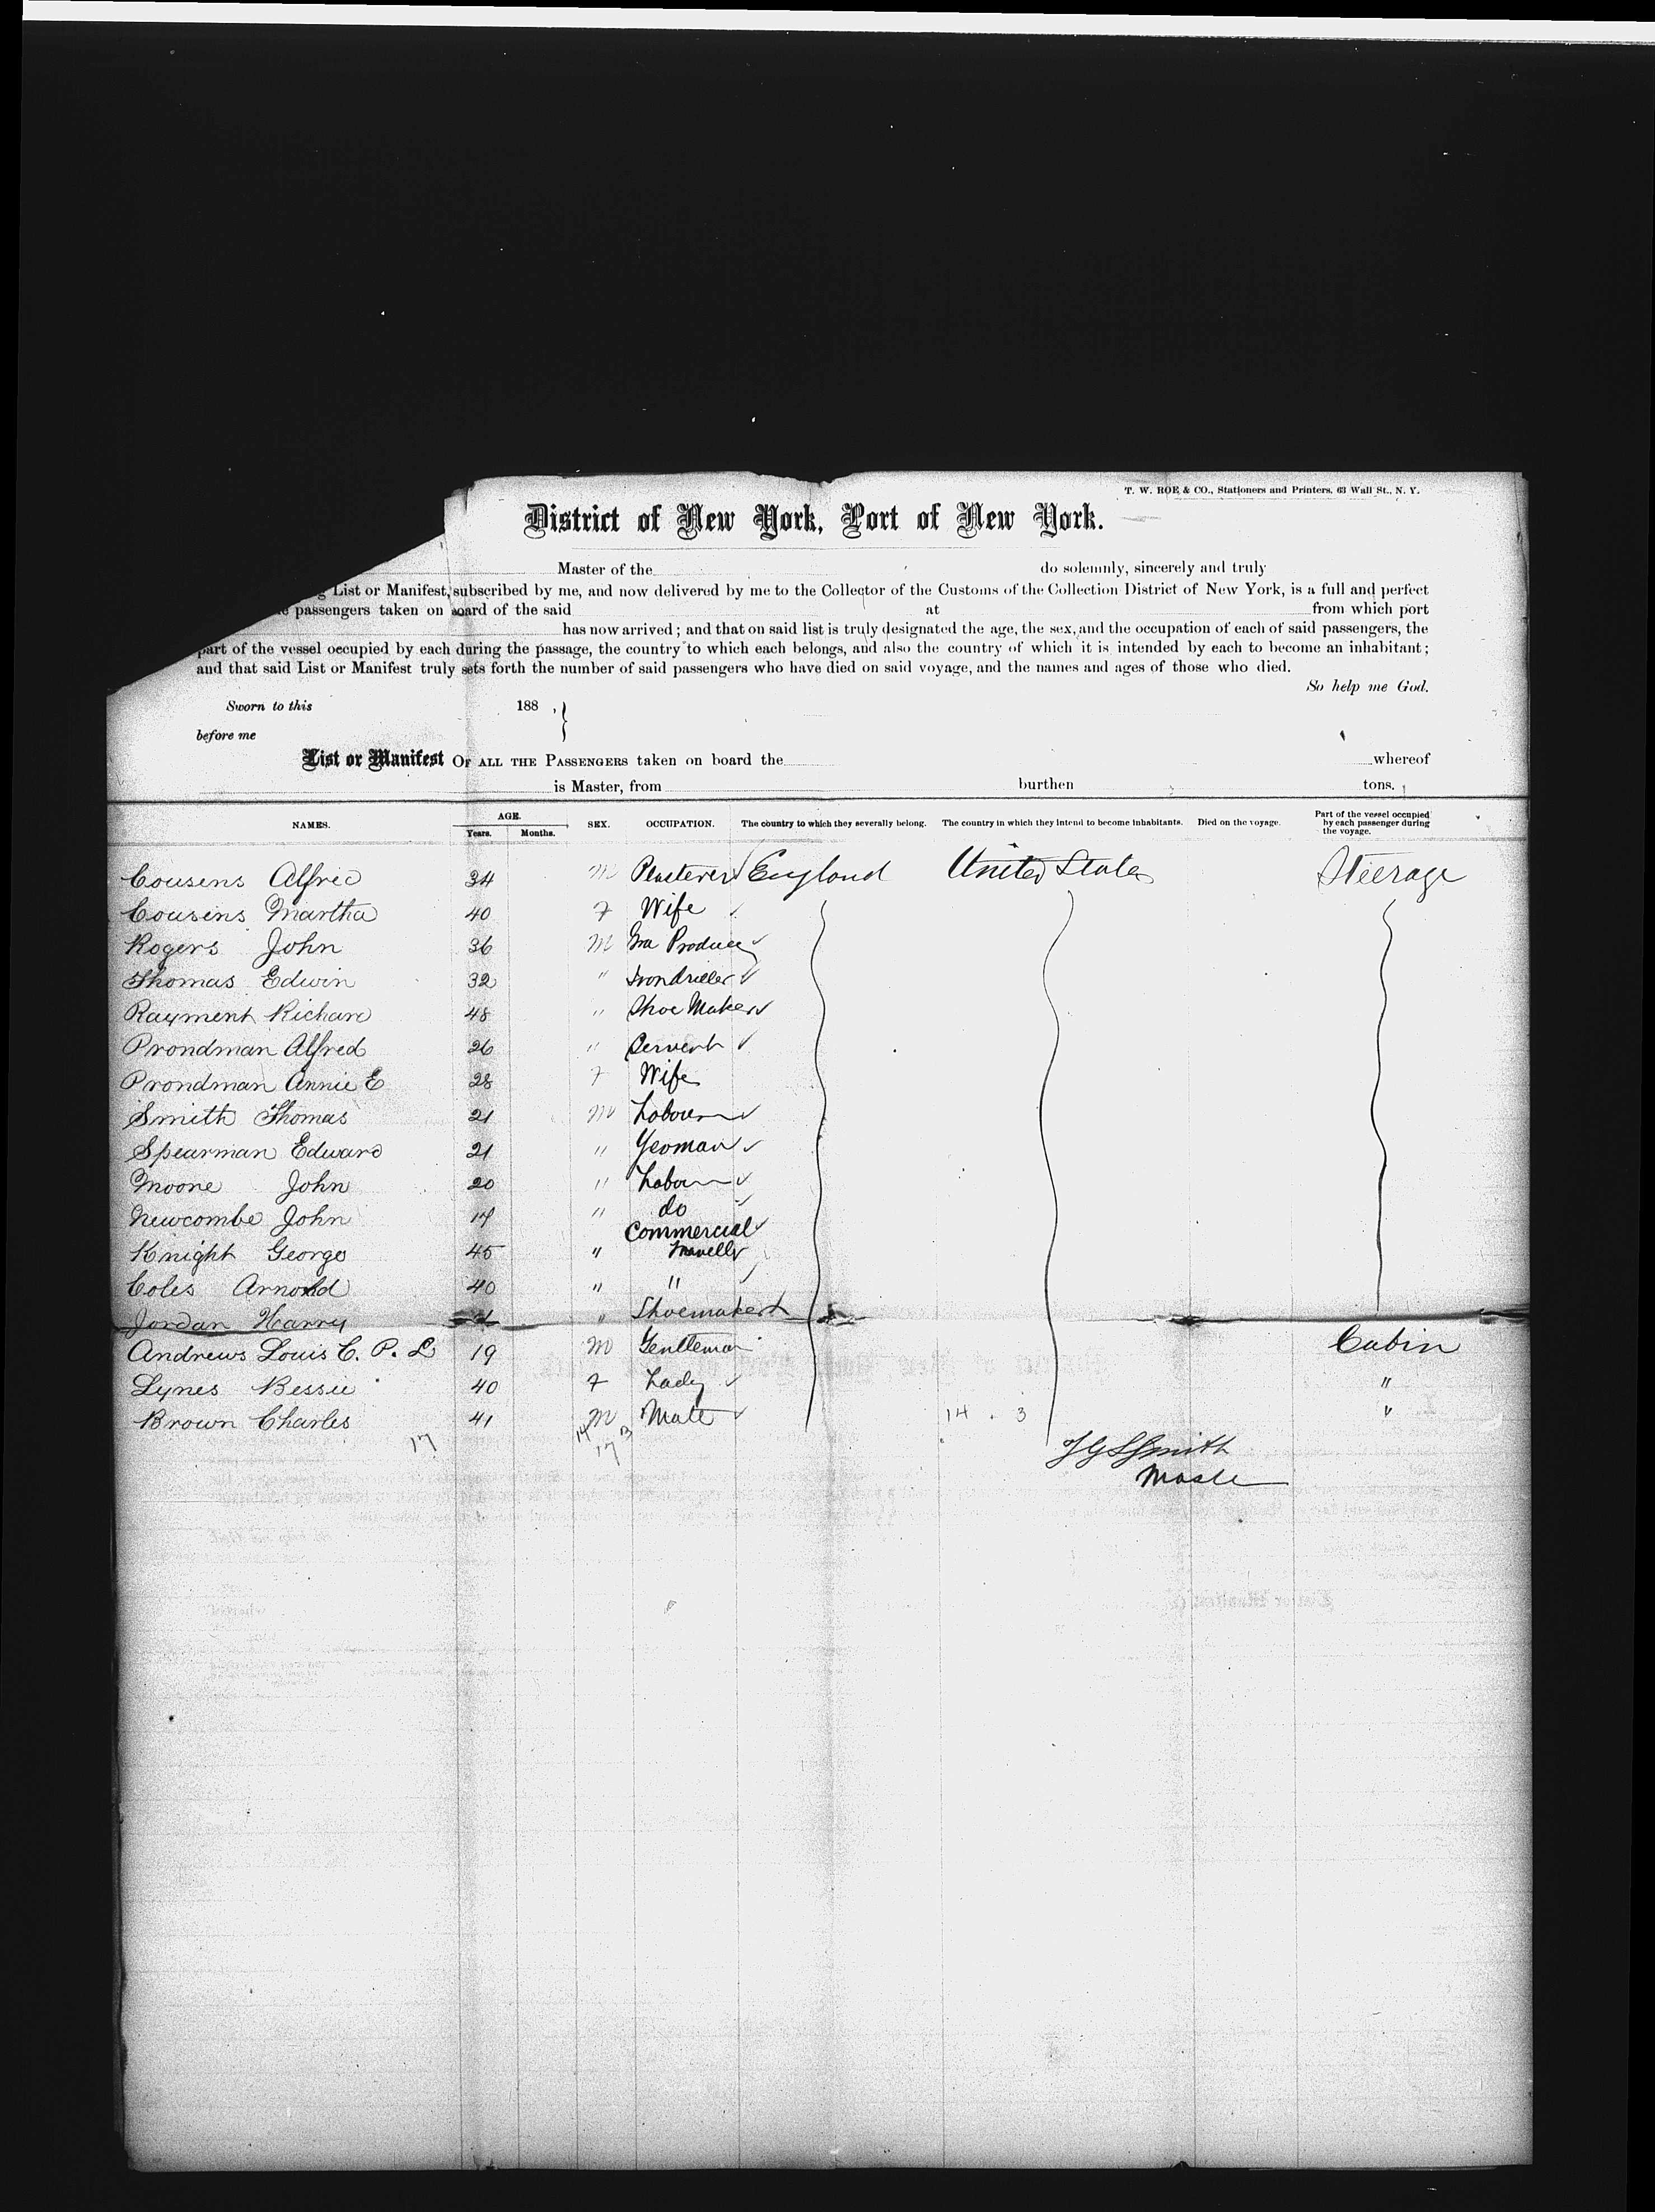 T. W. ROE & CO., Stationers and Printers, 63 Wall St., N. Y.
District of New York, Port of New York.
Master of the do solemnly, sincerely and truly
List or Manifest, subscribed by me, and now delivered by me to the Collector of the Customs of the Collection District of New York, is a full and perfect
passengers taken on board of the said at from which port
has now arrived; and that on said list is truly designated the age, the sex, and the occupation of each of said passengers, the
part of the vessel occupied by each during the passage, the country to which each belongs, and also the country of which it is intended by each to become an inhabitant;
and that said List or Manifest truly sets forth the number of said passengers who have died on said voyage, and the names and ages of those who died.
So help me God.
Sworn to this 188 , }
before me
List or Manifest OF ALL THE PASSENGERS taken on board the whereof
is Master, from burthen tons.
NAMES. AGE. Years. Months. SEX. OCCUPATION. The country to which they severally belong. The country in which they intend to become inhabitants. Died on the voyage. Part of the vessel occupied by each passenger during the voyage.
Cousens Alfred 34 M Plasterer England United States Steerage
Cousens Martha 40 F Wife
Rogers John 36 M Produce
Thomas Edwin 32 " Irondriller
Rayment Richard 48 " Shoe Maker
Prondman Alfred 26 " Servent
Prondman Annie E 28 F Wife
Smith Thomas 21 M Labourer
Spearman Edward 21 " Yeoman
Moone John 20 " Labour
Newcombe John 19 " do
Knight George 45 " Commercial Traveller
Coles Arnold 40 " "
Jordan Harry " Shoemaker
Andrews Louis C. P. L 19 M Gentleman Cabin
Lynes Bessie 40 F Lady "
Brown Charles 41 M Mate 14 . 3 "
17 14 3
17
J G S Smith
Master